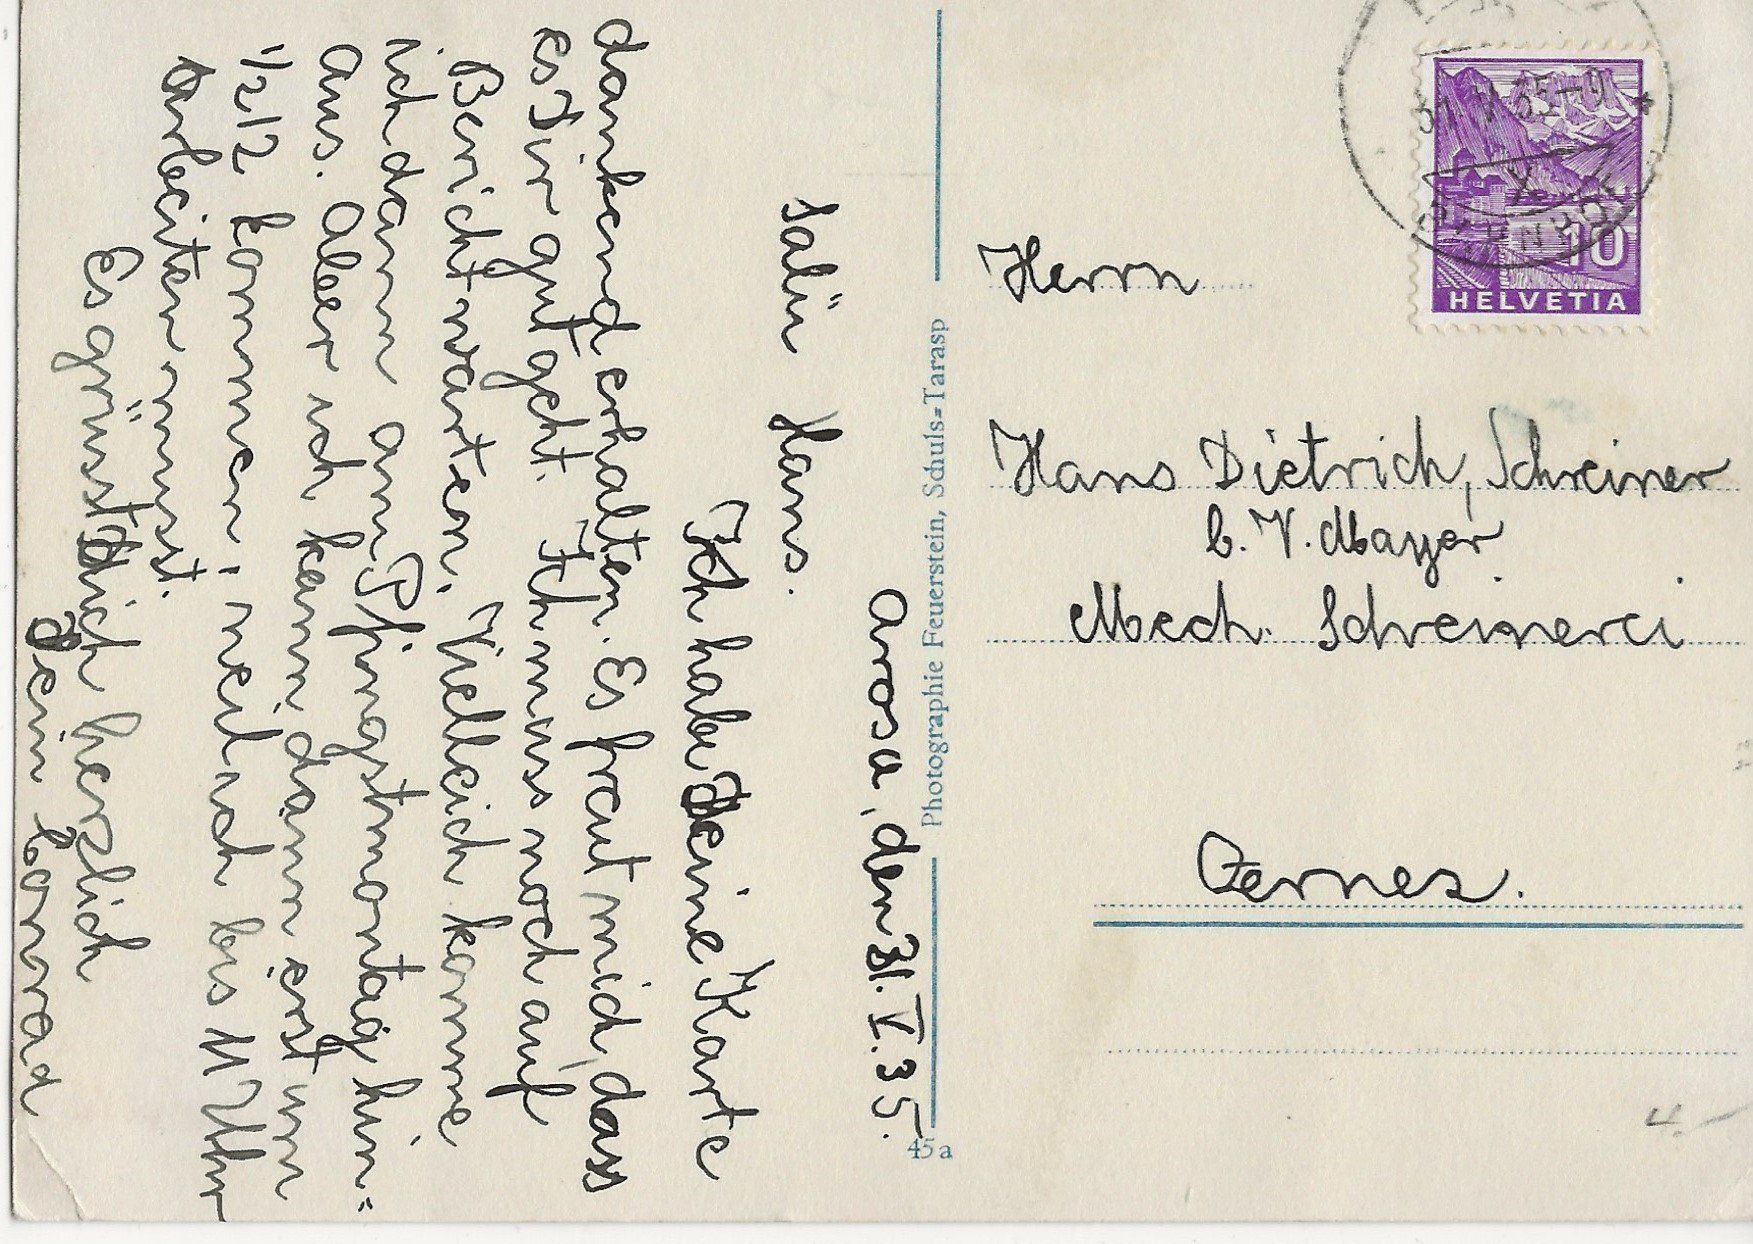 Arosa, den 31. V. 35.
Salü Hans.
Ich habe Deine Karte
dankend erhalten. Es freut mich, dass
es Dir gut geht. Ich muss noch auf
Bericht warten. Vielleich komme
ich dann am Pfingstmontag hin-
aus. Aber ich kann dann erst um
1/2 12 kommen, weil ich bis 11 Uhr
arbeiten müsst.
Es grüsst Dich herzlich
Dein Conrad
Photographie Feuerstein, Schuls=Tarasp
45a
31. V. 35-9
HELVETIA
10
Herrn
Hans Dietrich, Schreiner
b. V. Mayer
Mech. Schreinerei
Zernez.
4.-